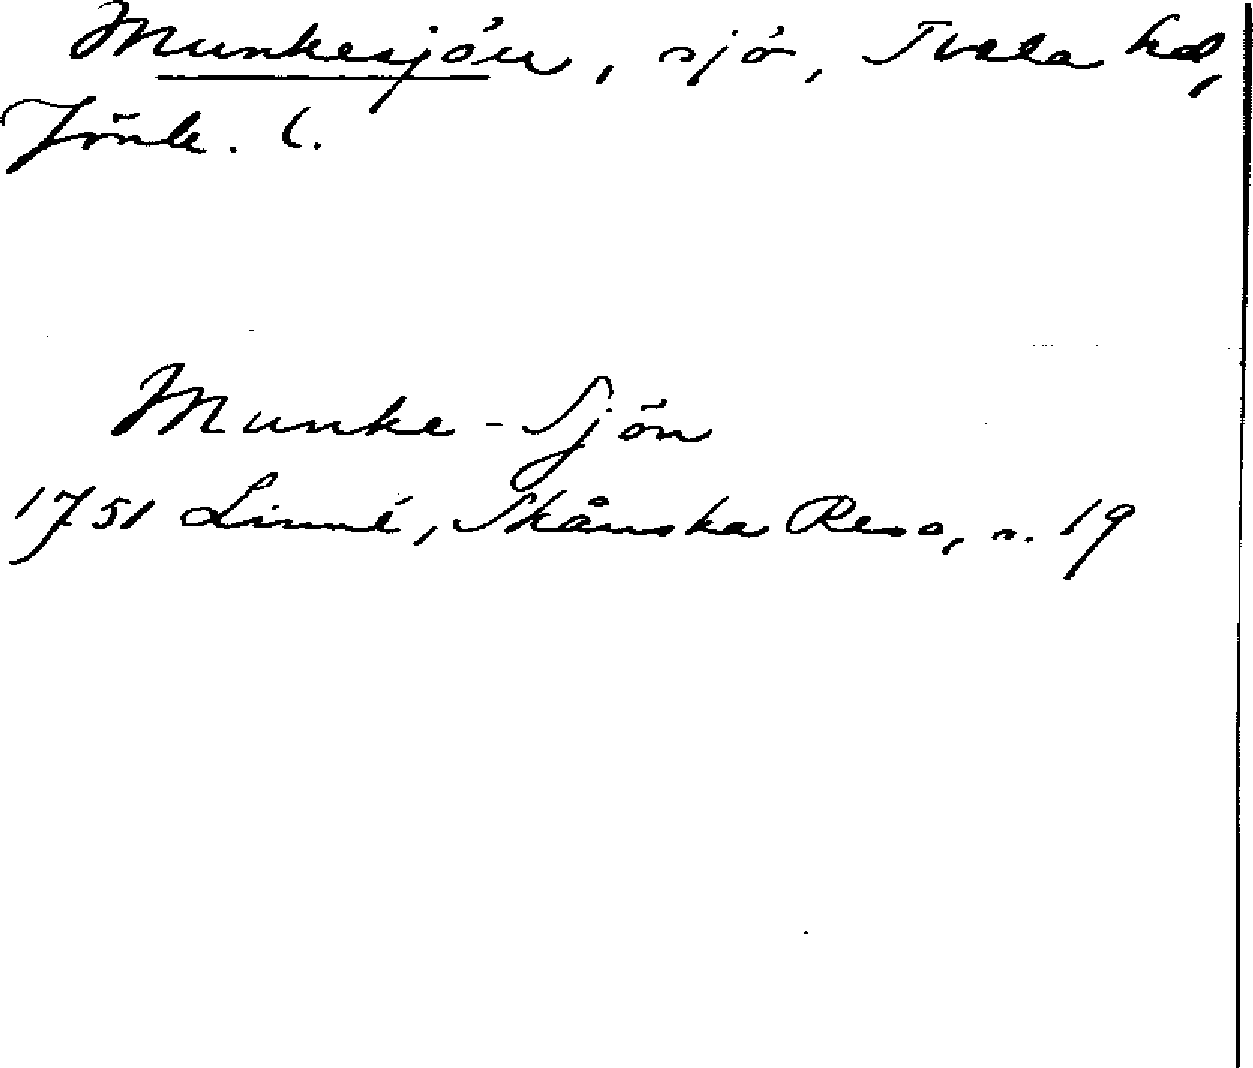 Munkesjön, sjö, Tveta hd,
Jönk. l.
Munke-Sjön
1751 Linné, Skånska Resa, s. 19